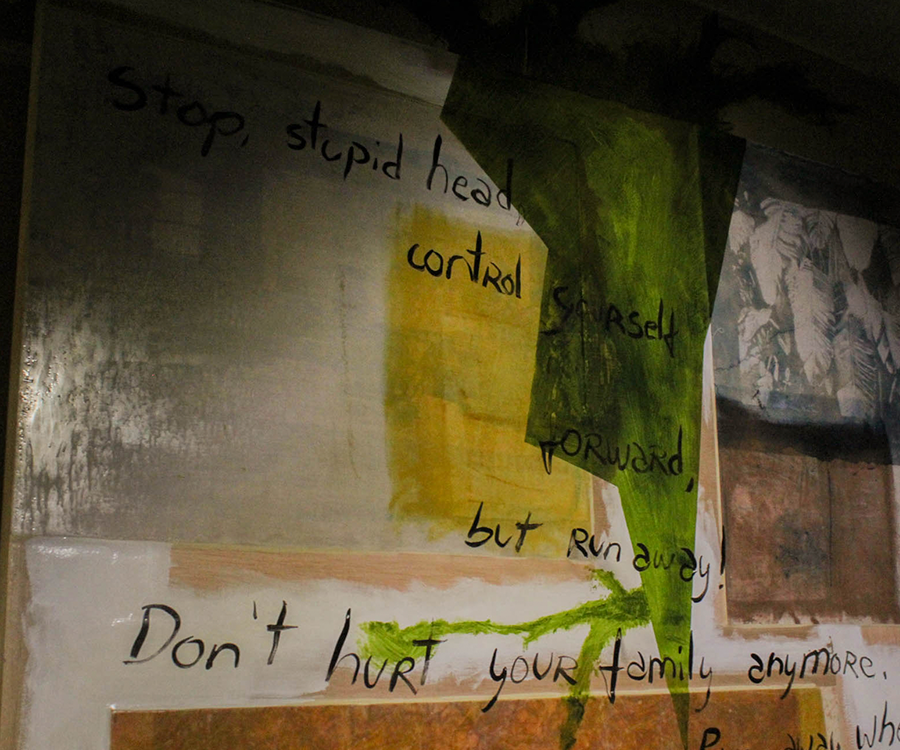 Stop, stupid head,
control yourself
forward,
but run away!
Don't hurt your family anymore.
away